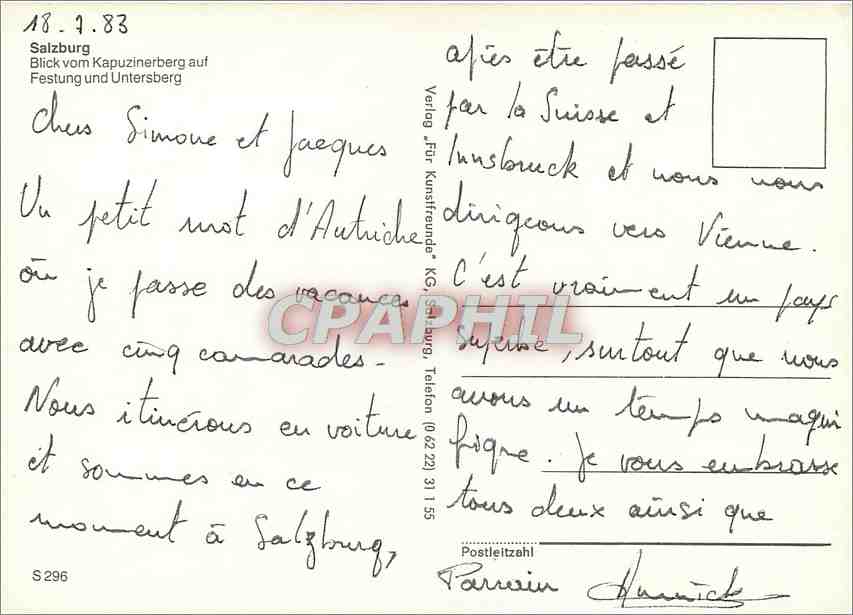 18.7.83
Salzburg
Blick vom Kapuzinerberg auf
Festung und Untersberg
Chers Simone et Jacques
Un petit mot d'Autriche
où je passe des vacances
avec cinq camarades.
Nous itinérons en voiture
et sommes en ce
moment à Salzburg,
S 296
Verlag „Für Kunstfreunde" KG, Salzburg, Telefon (0 62 22) 31 1 55
après être passé
par la Suisse et
Innsbruck et nous nous
dirigeons vers Vienne.
C'est vraiment un pays
superbe, surtout que nous
avons un temps magni
fique. Je vous embrasse
tous deux ainsi que
Postleitzahl
Parrain Annick
CPAPHIL